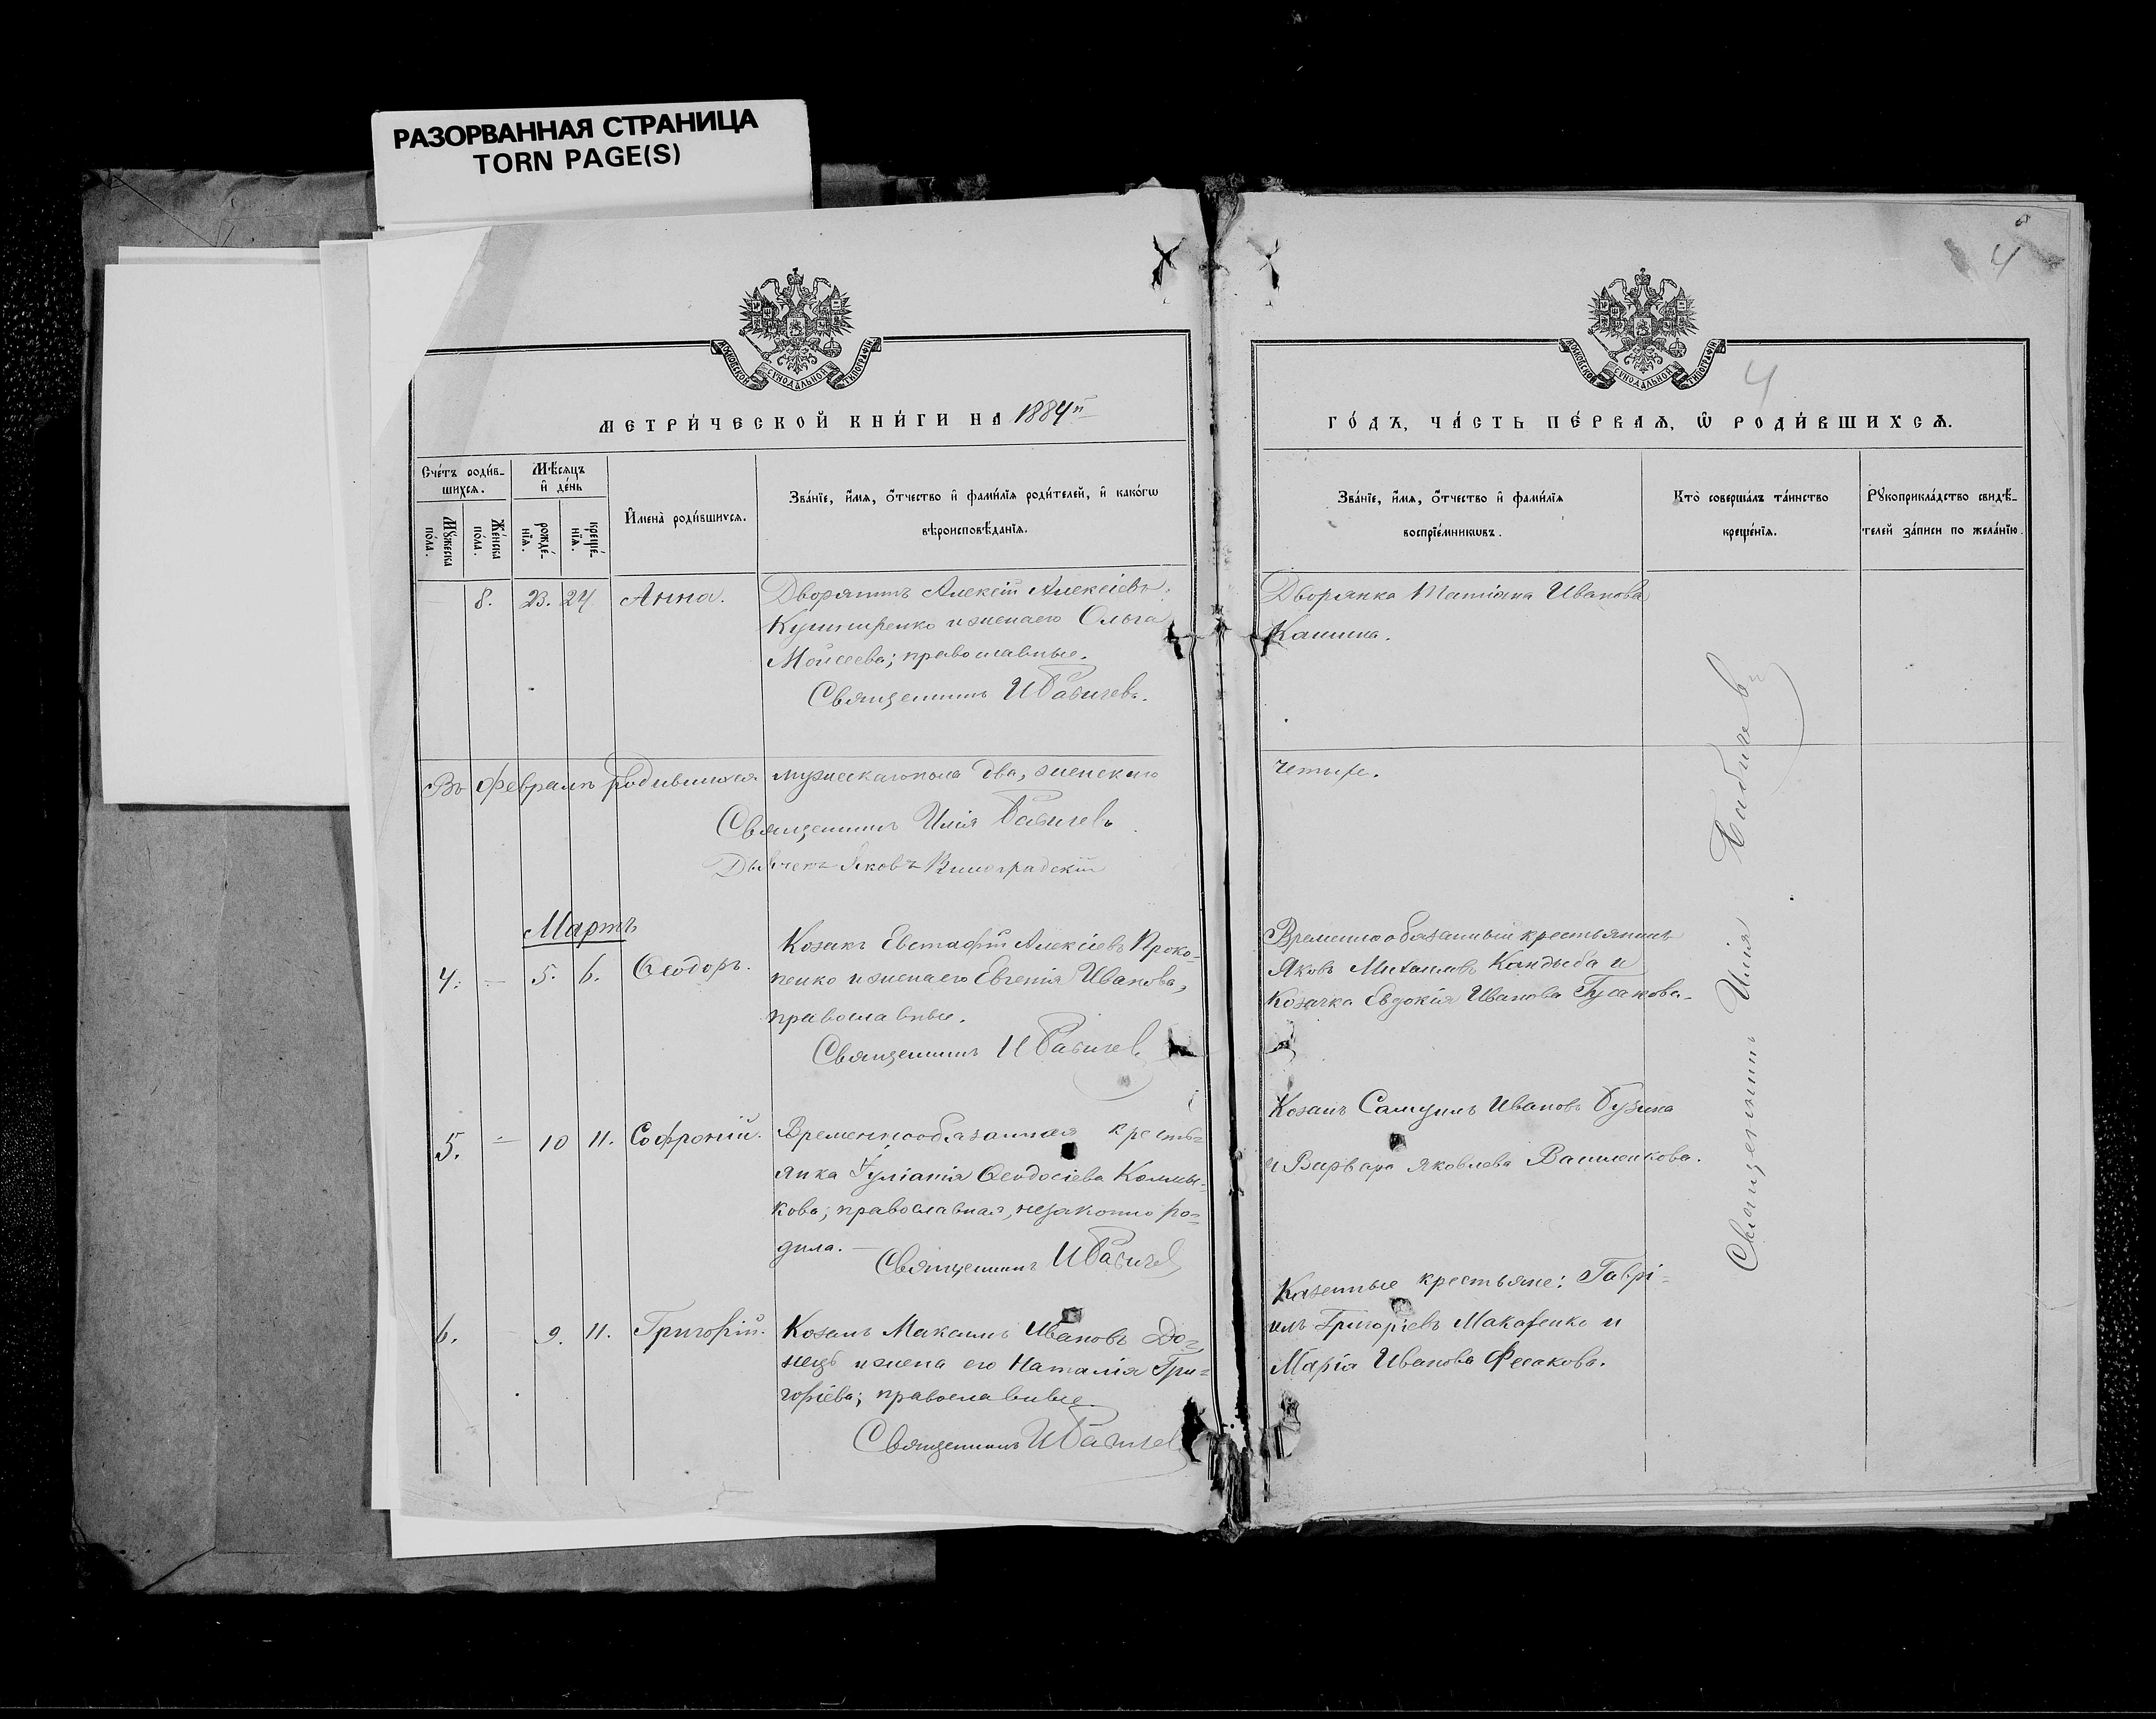 РАЗОРВАННАЯ СТРАНИЦА
TORN PAGE(S)
4
4
МОСКОВСКОЙ СѴНОДАЛЬНОЙ ТИПОГРАФІИ
МОСКОВСКОЙ СѴНОДАЛЬНОЙ ТИПОГРАФІИ
МЕТРИ́ЧЕСКОЙ КНИ́ГИ НА 1884й
ГО́ДЪ, ЧА́СТЬ ПЕ́РВАѦ, Ѡ҆ РОДИ́ВШИХСѦ.
Сче́тъ роди́в-
шихсѧ.
Мꙋ́жеска
по́ла.
Же́нска
по́ла.
Мѣ́сѧцъ
и҆ де́нь
рожде́-
нїѧ.
креще́-
нїѧ.
И҆мена̀ роди́вшихсѧ.
Зва́нїе, и҆́мѧ, ѻ҆́тчество и҆ фами́лїѧ роди́телей, и҆ како́гѡ
вѣроисповѣ́данїѧ.
Зва́нїе, и҆́мѧ, ѻ҆́тчество и҆ фами́лїѧ
воспрїе́мникѡвъ.
Кто̀ соверша́лъ та́инство
креще́нїѧ.
Рꙋкоприкла́дство свидѣ́-
телей за́писи по жела́нїю.
8. 23. 24 Анна.
Дворянинъ Алексій Алексіевъ
Кушнеренко и жена его Ольга
Моисеева; православные.
Священникъ И Бабичевъ.
Дворянка Татіана Иванова
Кашина.
Въ Февралѣ родившихся мужескаго пола два, женскаго
четыре.
Священникъ Илія Бабичевъ
Дьячекъ Яковъ Виноградскій
Мартъ
4. — 5. 6. Ѳеодоръ.
Козакъ Евстафій Алексіевъ Проко-
пенко и жена его Евгенія Иванова,
православные.
Священникъ И Бабичев
Временнообязанный крестьянинъ
Яковъ Михаиловъ Кандыба и
Козачка Евдокія Иванова Гусакова.
5. — 10 11. Софроній.
Временнообязанная кресть-
янка Іуліанія Ѳеодосіева Колмы-
кова; православная, незаконно ро-
дила. —
Священникъ И Бабичев
Козакъ Самуилъ Ивановъ Бузина
и Варвара Яковлева Василенкова.
6. 9. 11. Григорій.
Козакъ Максимъ Ивановъ До-
нецъ и жена его Наталія Гри-
горіева; православные.
Священникъ И Бабичев
Казенные крестьяне: Гаврі-
илъ Григоріевъ Макаренко и
Марія Иванова Фесакова.
Священникъ Илія Бабичевъ